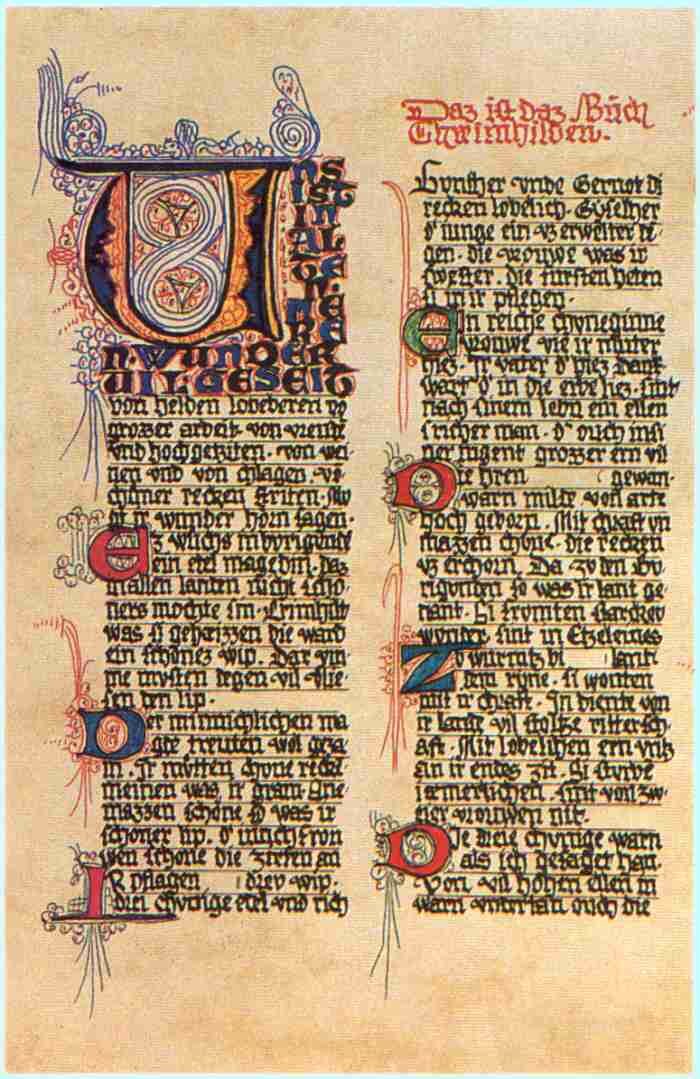 UNS
IST
IN
AL
TE
N·ME
RE
N·WUNDER
UIL·GESEIT
von helden lobeberen vō
grozzer arbeit· von vreude
vnd hochgeziten· von wei
nen vnd von chlagen· vō
chuner recken striten· Mv
ir wunder horn sagen·
Ez wuchs in
ein etel magedin· daz
in allen lanten nicht scho
ners mochte sin· Crimhilt
was si geheizzen die ward
ein schonez wip· Dar vm
me mvsten degen vil vlie
sen den lip·
Der minnichlichen ma
gde treuten wol geza
m· Ir mvtten chvne recke
was ir gram· ane
mazzen schone so was ir
schoner lip· d' iunchfron
wen schone die zirten an
Ir pflagen drey wip·
drei chvnige etel vnd rich
Daz ist daz Bůch
Chreimhilden·
Gvnther vnde Gernot di
recken lobelich· Gyselher
d' iunge ein vz erwelter te
gen· die vrouwe was ir
swester· die fursten heten
si in ir pflegen·
Ein reiche chvneginne
vrouwe vte ir muter
hiez· Ir vater d' hiez dank
wart d' in die erbe liez· sint
nach sinem lebn ein ellen
s richer man· d' ouch in si
ner iugent grozzer ern vil
Die hren gewan·
warn milte von arte
hoch geborn· Mit chraft vn
mazzen chvne· die recken
vz erchorn· Da zv den Bv
rigvnden so was ir lant ge
nant· Si frvmten starckev
wunder· sint in Etzeleines
Zv wurmtz bi lant·
dem ryne· si wonten
mit ir chraft· In diente von
ir lande vil stoltze rittersch
aft· Mit lobelichen ern vntz
an ir endes zit· Si sturbe
iemerlichen· sint von zw
eier vrouwen nit·
Die dreie chvnige warn
als ich gesaget han·
Von vil hohen ellen in
warn vntertan ouch die